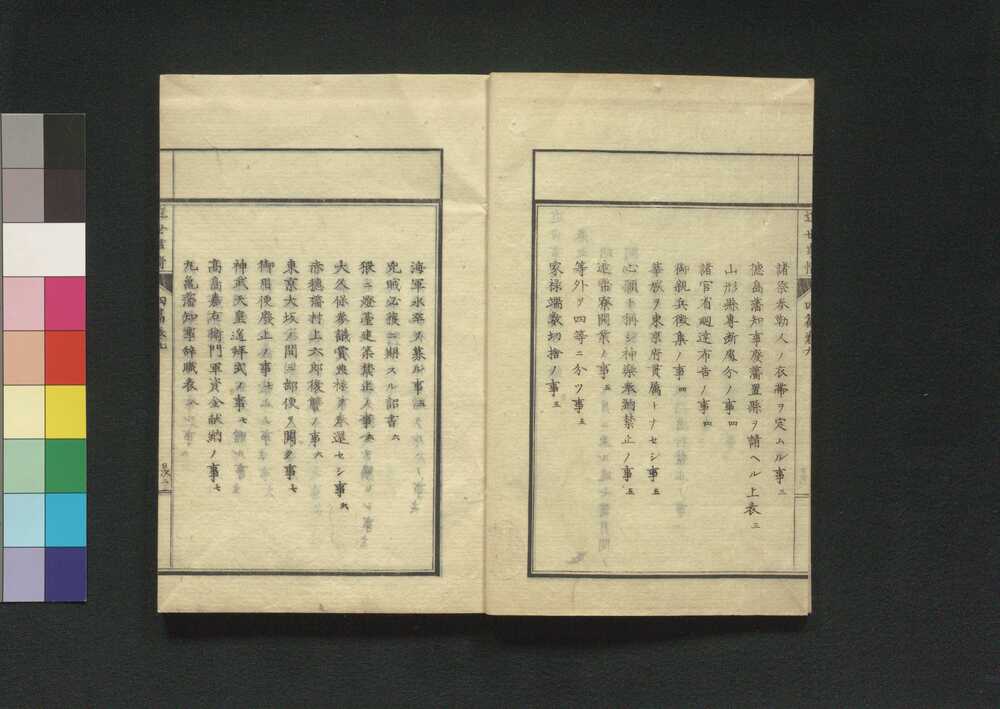 諸祭参勤人ノ衣帯ヲ定ムル事 三
徳島藩知事廢藩置縣ヲ請ヘル上表 三
山形縣専断處分ノ事 四
諸官省廻達布告ノ事 四
御親兵徴集ノ事 四
華族ヲ東京府貫属トナセシ事 五
心願ト稱シ神樂奉納禁止ノ事 五
造幣寮開業ノ事 五
等外ヲ四等ニ分ツ事 五
家禄端数切捨ノ事 五
海軍水卒ヲ募ル事 五
兇賊必獲ヲ期スル詔書 六
猥ニ燈臺建築禁止ノ事 六
大久保参議賞典禄ヲ奉還セシ事 六
赤穂藩村上六郎復讐ノ事 六
東京大坂ノ間ニ郵便ヲ開ク事 七
御用便廢止ノ事 七
神武天皇遥拝式ノ事 七
髙島嘉右衛門軍資金献納ノ事 七
丸亀藩知事辞職表 八